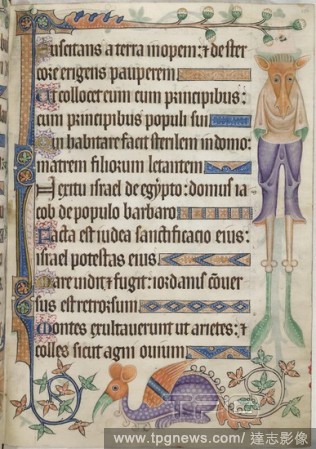 Suscitans a terra inopem: ⁊ de ster
core erigens pauperem
Ut collocet eum cum principibus:
cum principibus populi sui
Qui habitare facit sterilem in domo:
matrem filiorum letantem
In exitu israel de egypto: domus ia
cob de populo barbaro
Facta est iudea sanctificacio eius:
israel potestas eius
Mare vidit ⁊ fugit: iordanis conver
sus est retrorsum
Montes exultaverunt ut arietes: ⁊
colles sicut agni ovium
www.tpgnews.com/ 達志影像